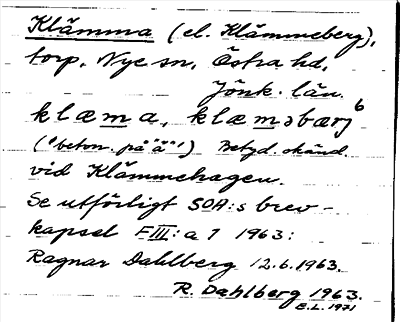 Klämma (el. Klämmeberg),
torp. Nye sn, Östra hd,
Jönk. län.
klæma, klæməbærj⁶
("beton. på "ä"") Betyd. okänd.
vid Klämmehagen.
Se utförligt SOA:s brev-
kapsel FIII:a 7 1963:
Ragnar Dahlberg 12.6.1963.
R. Dahlberg 1963.
E.L. 1971